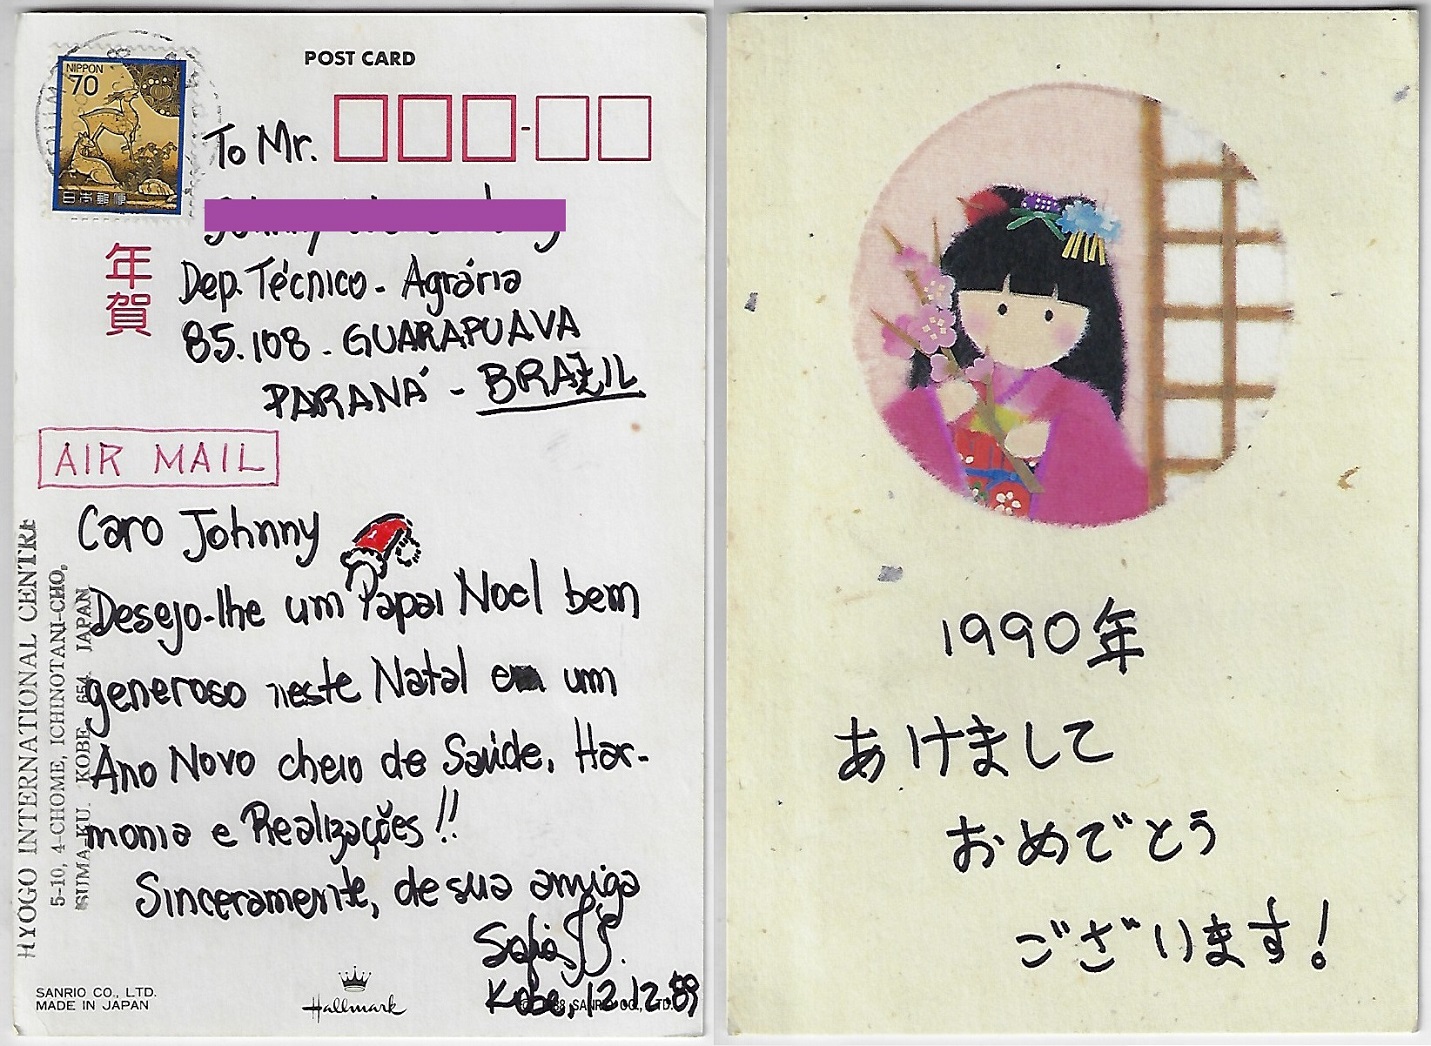 POST CARD
NIPPON
70
日本郵便
To Mr.
年賀
Dep. Técnico - Agrária
85.108 - GUARAPUAVA
PARANÁ - BRAZIL
AIR MAIL
Caro Johnny
Desejo-lhe um Papai Noel bem
generoso neste Natal e um
Ano Novo cheio de Saúde, Har-
monia e Realizações!!
Sinceramente, de sua amiga
Kobe, 12.12.89
HYOGO INTERNATIONAL CENTRE
5-10, 4-CHOME, ICHINOTANI-CHO,
SUMA-KU. KOBE 654 JAPAN
SANRIO CO., LTD.
MADE IN JAPAN
Hallmark
SANRIO CO., LTD.
1990年
あけまして
おめでとう
ございます!